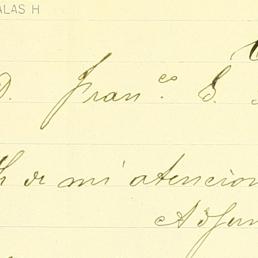 ALAS H
D. Fran.co S.
de mi atencion
Adjun